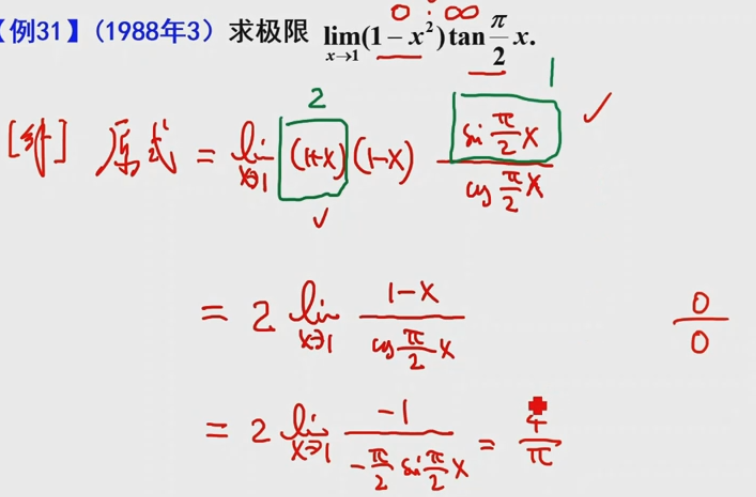 0 · ∞
【例31】(1988年3) 求极限 lim_{x→1}(1-x²)tan π/2 x.
2 1
[解] 原式 = lim_{x→1} (1+x)(1-x) sin π/2 x / cos π/2 x ✓
✓
= 2 lim_{x→1} 1-x / cos π/2 x 0/0
= 2 lim_{x→1} -1 / -π/2 sin π/2 x = 4/π